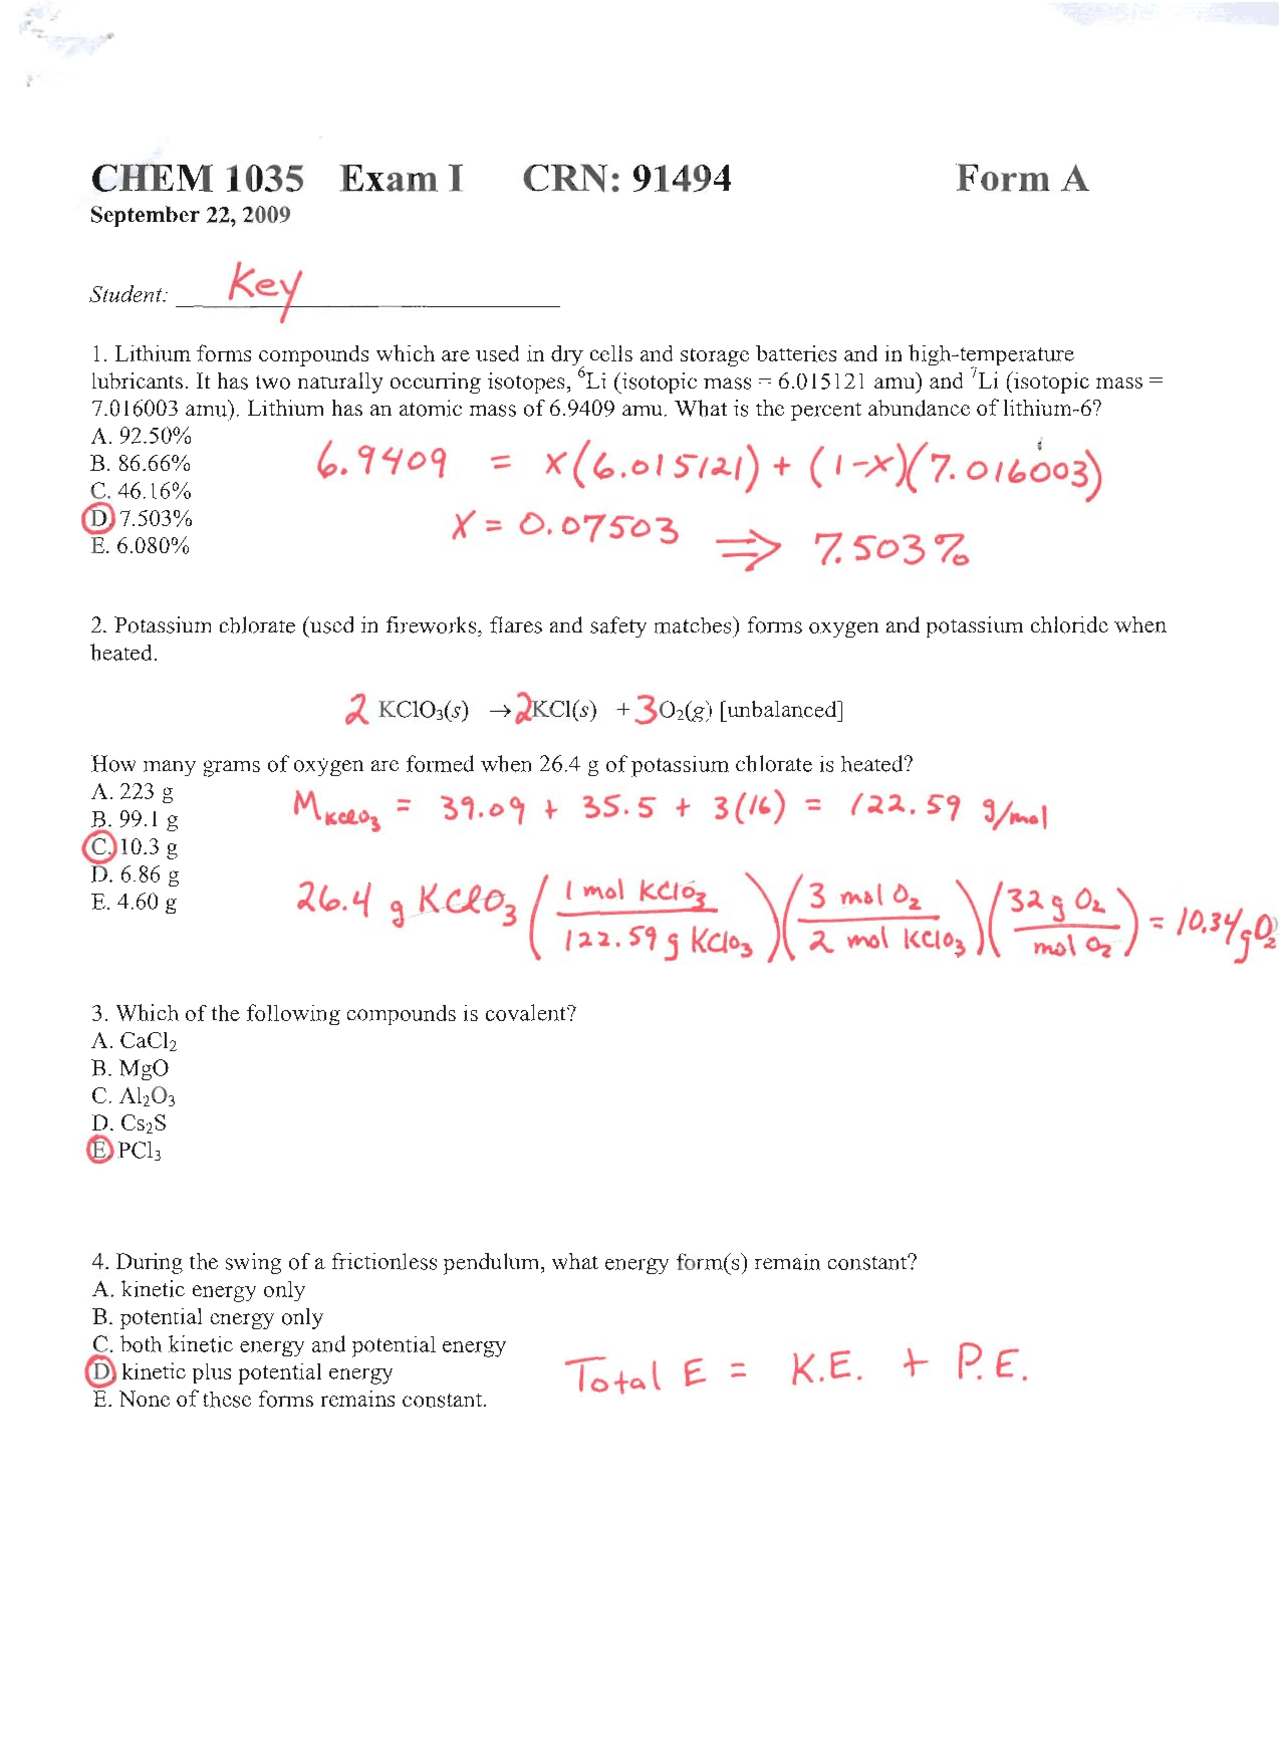 CHEM 1035 Exam I CRN: 91494 Form A
September 22, 2009
Student: Key
1. Lithium forms compounds which are used in dry cells and storage batteries and in high-temperature
lubricants. It has two naturally occurring isotopes, ⁶Li (isotopic mass = 6.015121 amu) and ⁷Li (isotopic mass =
7.016003 amu). Lithium has an atomic mass of 6.9409 amu. What is the percent abundance of lithium-6?
A. 92.50%
B. 86.66%
C. 46.16%
D. 7.503%
E. 6.080%
6.9409 = x(6.015121) + (1-x)(7.016003)
x = 0.07503 ⇒ 7.503%
2. Potassium chlorate (used in fireworks, flares and safety matches) forms oxygen and potassium chloride when
heated.
2 KClO₃(s) → 2 KCl(s) + 3 O₂(g) [unbalanced]
How many grams of oxygen are formed when 26.4 g of potassium chlorate is heated?
A. 223 g
B. 99.1 g
C. 10.3 g
D. 6.86 g
E. 4.60 g
M KClO₃ = 39.09 + 35.5 + 3(16) = 122.59 g/mol
26.4 g KClO₃ (1 mol KClO₃ / 122.59 g KClO₃)(3 mol O₂ / 2 mol KClO₃)(32 g O₂ / mol O₂) = 10.34 g O₂
3. Which of the following compounds is covalent?
A. CaCl₂
B. MgO
C. Al₂O₃
D. Cs₂S
E. PCl₃
4. During the swing of a frictionless pendulum, what energy form(s) remain constant?
A. kinetic energy only
B. potential energy only
C. both kinetic energy and potential energy
D. kinetic plus potential energy
E. None of these forms remains constant.
Total E = K.E. + P.E.